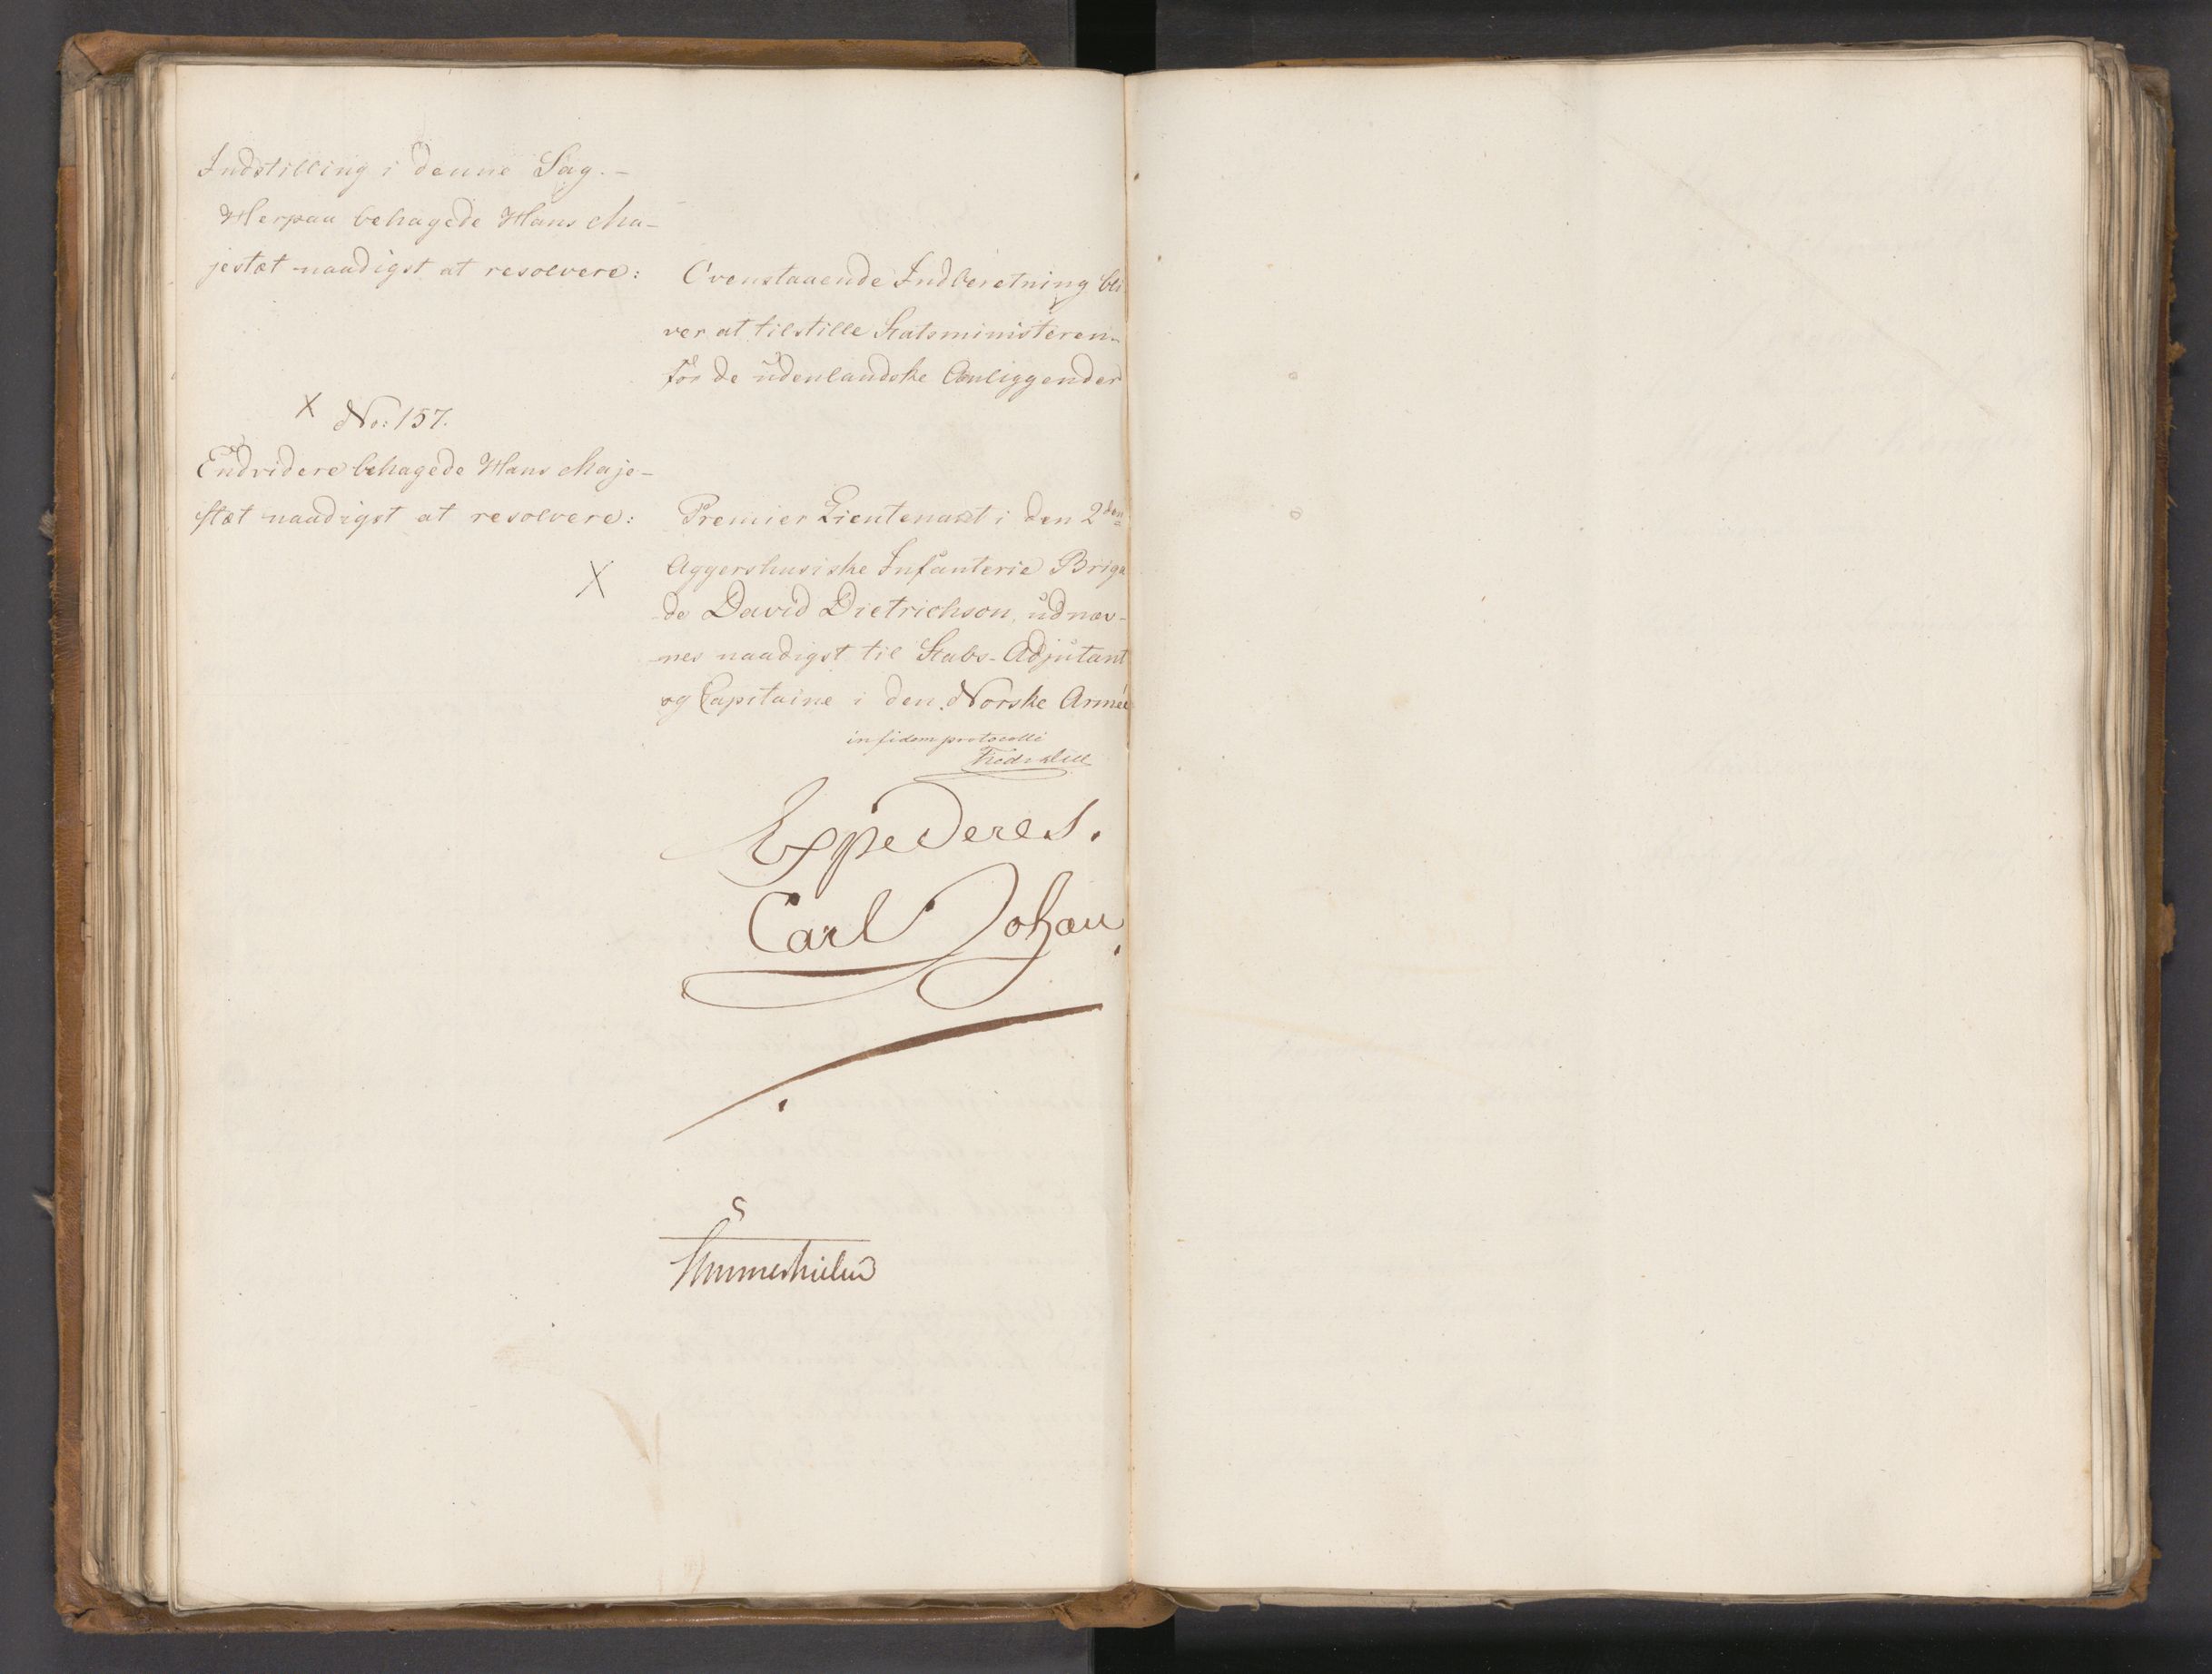 Indstilling i denne Sag. –
Herpaa behagede Hans Ma-
jestæt naadigst at resolvere:
Ovenstaaende Indberetning bli
ver at tilstille Statsministeren
for de udenlandske Anliggender
X No: 157.
Endvidere behagede Hans Maje-
stæt naadigst at resolvere:
Premier Lieutenant i den 2den
X Aggershusiske Infanterie Briga
de David Dietrichson, udnæv-
nes naadigst til Stabs-Adjutant
og Capitaine i den Norske Armée
in fidem protocolli
Fredr Due
Expederes.
Carl Johan